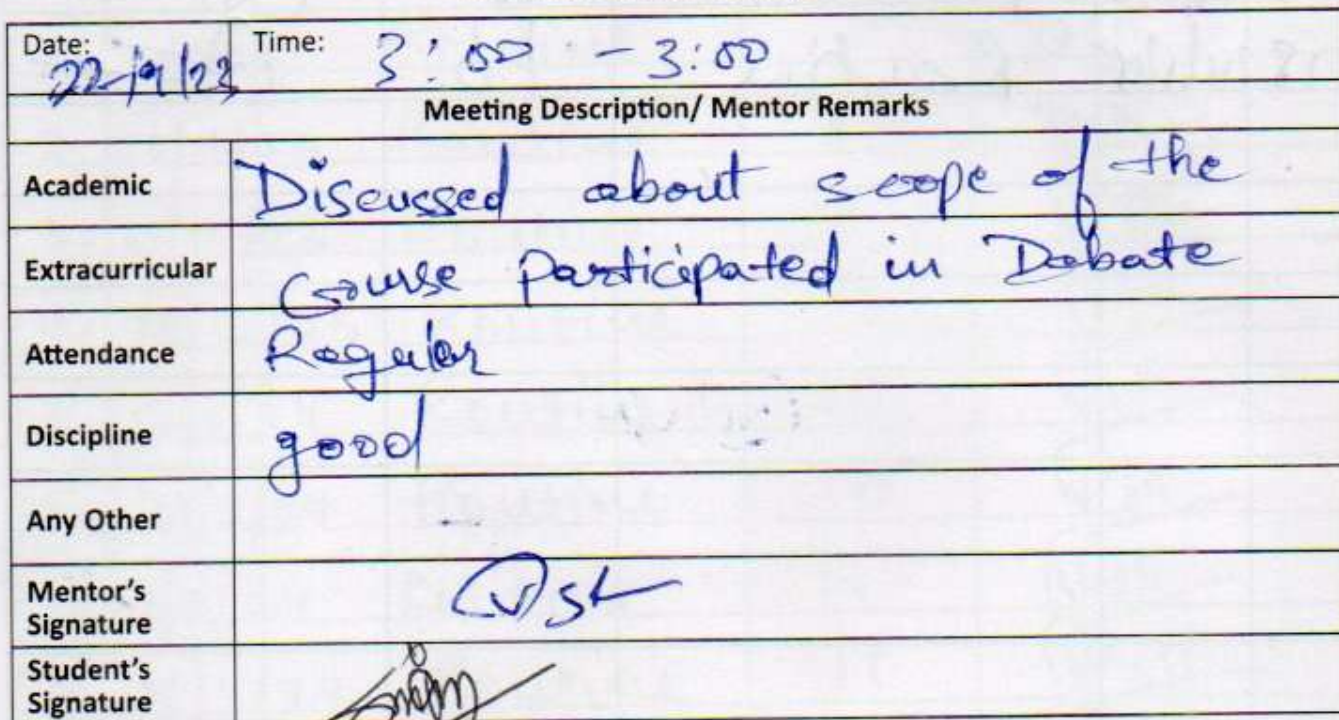 Date: 22/9/23 Time: 3:00 - 3:00
Meeting Description/ Mentor Remarks
Academic Discussed about scope of the
Extracurricular Course Participated in Debate
Attendance Regular
Discipline good
Any Other -
Mentor's
Signature
Student's
Signature